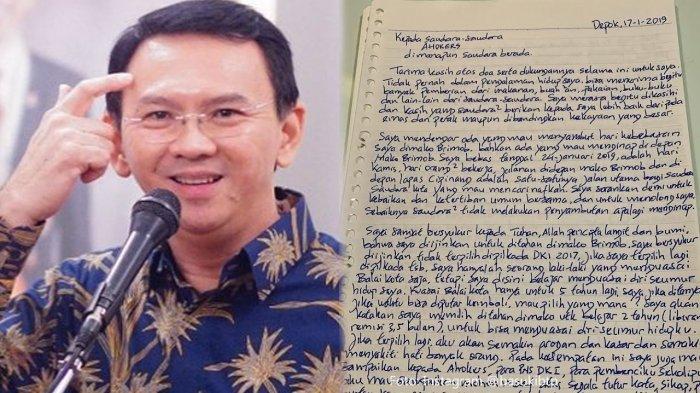 Depok, 17-1-2019
Kepada Saudara-saudara
AHOKERS
dimanapun saudara berada.
Tarima kasih atas doa serta dukungannya selama ini untuk saya.
Tidak pernah dalam pengalaman hidup saya, bisa menerima begitu
banyak pemberian dari makanan, buah²an, pakaian, buku-buku
dan lain-lain dari saudara-saudara. Saya merasa begitu dikasihi
dan kasih yang saudara² berikan kepada saya lebih baik dari pada
emas dan perak maupun dibandingkan kekayaan yang besar.
Saya mendengar ada yang mau menyambut hari kebebasan
saya dimako Brimob. bahkan ada yang mau menginap di depan
Mako Brimob. Saya bebas tanggal 24-januari 2019, adalah hari
Kamis, hari orang² bekerja, jalanan didepan mako Brimob dan di
depan lapas Cipinang adalah satu-satunya jalan utama bagi saudara
saudara kita yang mau mencari nafkah. Saya sarankan demi untuk
kebaikan dan ketertiban umum bersama, dan untuk menolong saya,
Sebaiknya saudara² tidak melakukan penyambutan apalagi menginap.
Saya sangat bersyukur kepada Tuhan, Allah pencipta langit dan bumi,
bahwa saya diijinkan untuk ditahan dimako Brimob. Saya bersyukur
diijinkan tidak terpilih dipilkada DKI 2017, jika saya terpilih lagi
dipilkada tsb, saya hanyalah seorang laki-laki yang menguasai
Balai Kota saja, tetapi saya disini belajar menguasai diri seumur
hidup saya. Kuasai Balai Kota hanya untuk 5 tahun lagi. Saya jika ditanya
jika waktu bisa diputar kembali, mau pilih yang mana? Saya akan
katakan saya memilih ditahan dimako utk belajar 2 tahun (liburan
remisi 3,5 bulan), untuk bisa menguasai diri seumur hidupku.
Jika terpilih lagi, aku akan semakin arogan dan kasar dan semakin
menyakiti hati banyak orang. Pada kesempatan ini saya juga mau
sampaikan kepada Ahokers, para PNS DKI, para pembenciku sekalipun
aku mau segala tutur kata, sikap,
Foto: Instagram @basukibtp